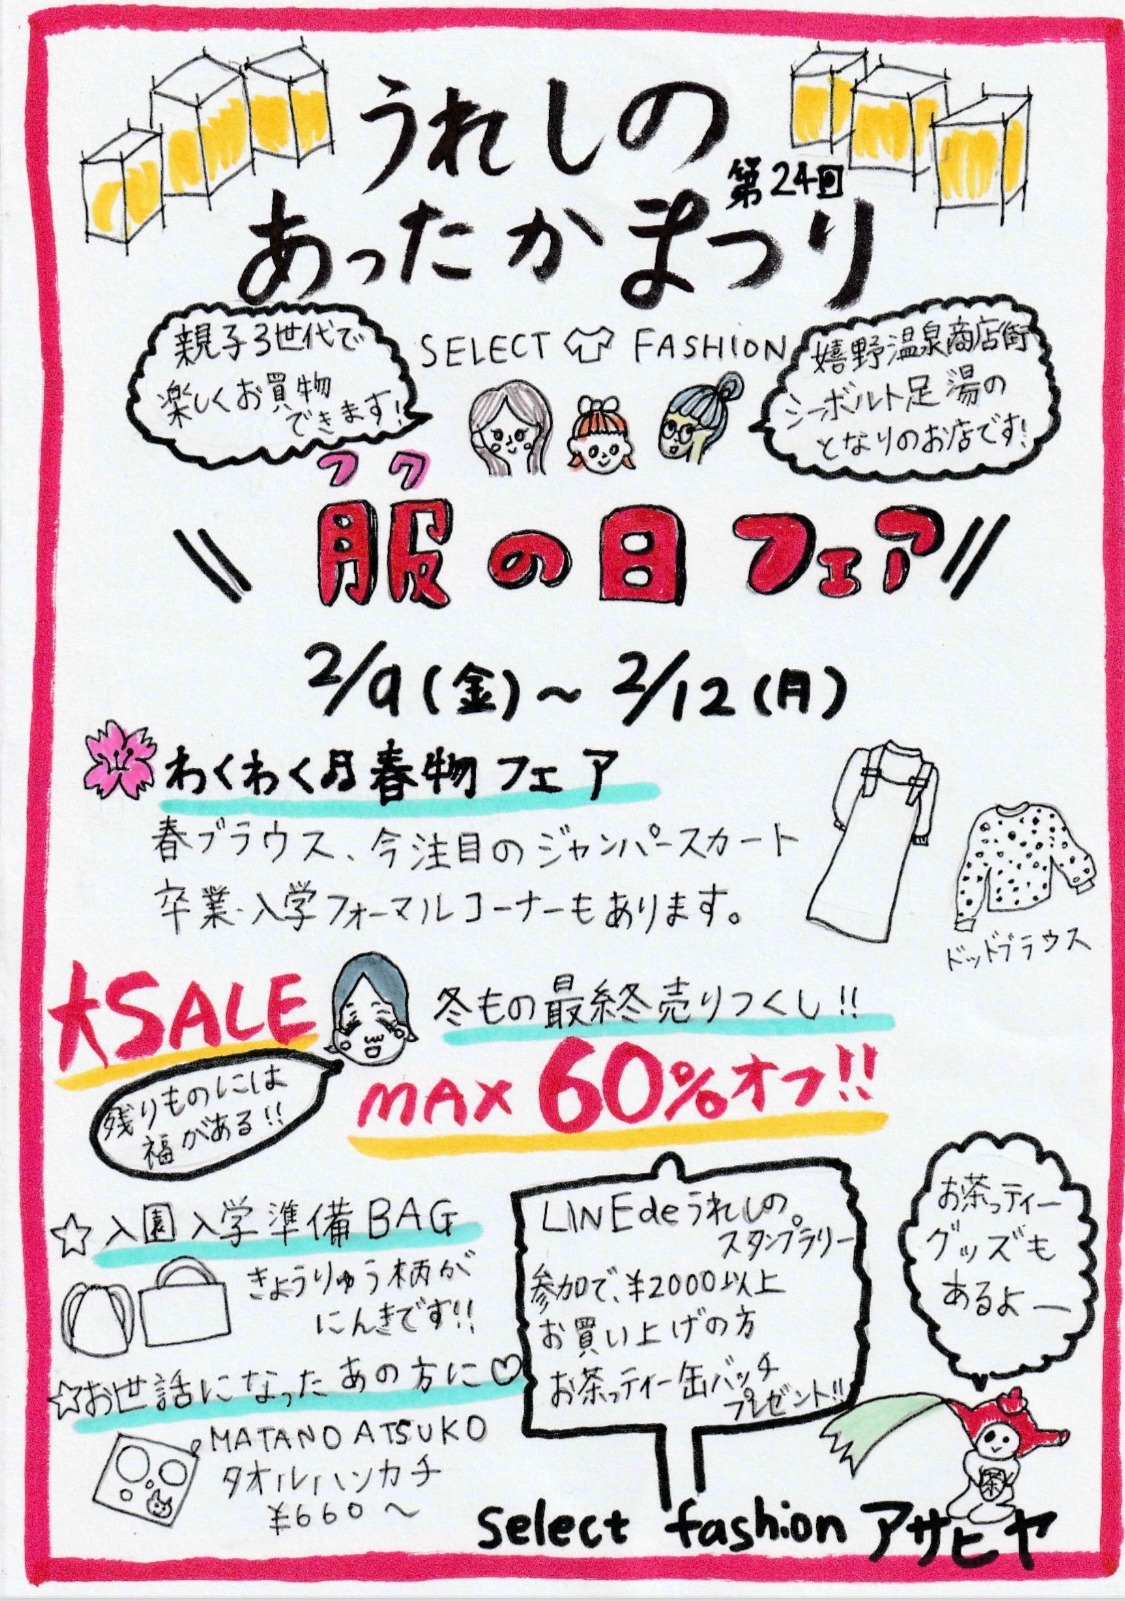 うれしの
あったかまつり
第24回
親子3世代で
楽しくお買物
できます!
SELECT FASHION
嬉野温泉商店街
シーボルト足湯の
となりのお店です!
フク
服の日フェア
2/9(金)~2/12(月)
わくわく♫春物フェア
春ブラウス、今注目のジャンパースカート
卒業・入学フォーマルコーナーもあります。
ドッドブラウス
大SALE
冬もの最終売りつくし!!
MAX 60%オフ!!
残りものには
福がある!!
☆入園入学準備BAG
きょうりゅう柄が
にんきです!!
☆お世話になったあの方に♡
MATANOATSUKO
タオルハンカチ
¥660~
LINEdeうれしの
スタンプラリー
参加で、¥2000以上
お買い上げの方
お茶っティー缶バッチ
プレゼント!!
お茶っティー
グッズも
あるよー
茶
Select fashion アサヒヤ